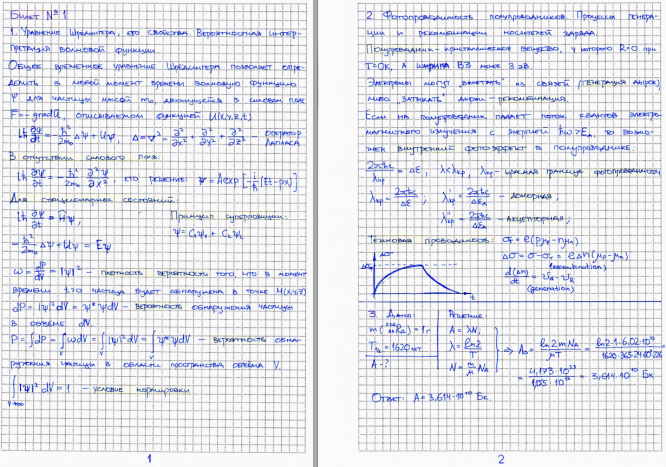 Билет № 1
1. Уравнение Шредингера, его свойства. Вероятностная интер-
претация волновой функции.
Общее временное уравнение Шредингера позволяет опре-
делить в любой момент времени волновую функцию
Ψ для частицы массой m₀, движущейся в силовом поле
F = -gradU, описываемом функцией U(x,y,z,t)
iħ ∂ψ/∂t = -ħ²/2m₀ Δψ + Uψ, Δ = ∇² = ∂²/∂x² + ∂²/∂y² + ∂²/∂z² - оператор Лапласа
В отсутствии силового поля:
iħ ∂ψ/∂t = -ħ²/2m₀ ∂²ψ/∂x², его решение: ψ = A exp[-i/ħ (Et - px)]
Для стационарных состояний:
iħ ∂ψ/∂t = Ĥψ, Принцип суперпозиции:
ψ = C₁ψ₁ + C₂ψ₂
-ħ²/2m₀ Δψ + Uψ = Eψ
ω = dP/dV = |ψ|² - плотность вероятности того, что в момент
времени t>0 частица будет обнаружена в точке M(x,y,z)
dP = |ψ|²dV = ψ*ψdV - вероятность обнаружения частицы
в объёме dV.
P = ∫dP = ∫ωdV = ∫|ψ|²dV = ∫ψ*ψdV - вероятность обна-
ружения частицы в области пространства объёма V.
∫|ψ|²dV = 1 - условие нормировки
V→∞
1
2. Фотопроводимость полупроводников. Процессы генера-
ции и рекомбинации носителей заряда.
Полупроводник - кристаллическое вещество, у которого при
T=0K, а ширина ВЗ менее 3 эВ.
Электроны могут "вылетать" из связей (генерация дырок)
либо "затыкать" дырки - рекомбинация.
Если на полупроводник падает поток квантов электро-
магнитного излучения с энергией ħω > Eд, то возмо-
жен внутренний фотоэффект в полупроводнике:
2πħc/λкр = ΔE, λ<λкр, λкр - красная граница фотопроводимости
λкр = 2πħc/ΔE; λ'кр = 2πħc/ΔEд - донорная,
λ''кр = 2πħc/ΔEA - акцепторная;
Темновая проводимость: σт = e(pμp - nμn)
Δσ = σ - σт = eΔn(μp - μn)
d(Δn)/dt = υG - υR
(recombination)
(generation)
Δσ
t
3. Дано: Решение:
m(Ra) = 1г A = λN;
T½ = 1620лет λ = ln2/T
A - ? N = m/μ NA
⇒ A₀ = ln2 m NA/μT = ln2·1·6,02·10²³/1620·365·24·60·226
= 3,614·10¹⁰ Бк.
Ответ: A = 3,614·10¹⁰ Бк.
2